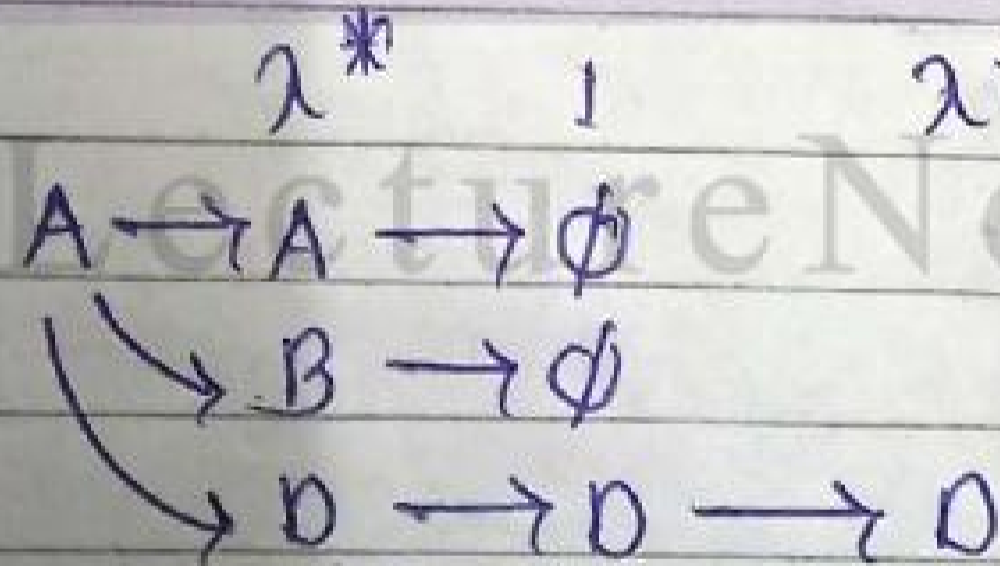 λ* 1 λ
A → A → ϕ
B → ϕ
D → D → D
LectureN